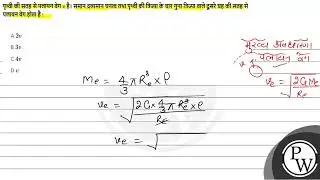 पृथ्वी की सतह से पलायन वेग v है। समान द्रव्यमान घनत्व तथा पृथ्वी की त्रिज्या के चार गुना त्रिज्या वाले दूसरे ग्रह की सतह से
पलायन वेग होता है :
A 2v
B 3v
C 4v
D v
Me = 4/3 π Re³ × ρ
ve = √(2G × 4/3 π Re³ × ρ / Re)
ve = √
पलायन वेग
ve = √(2GMe / Re)
PW